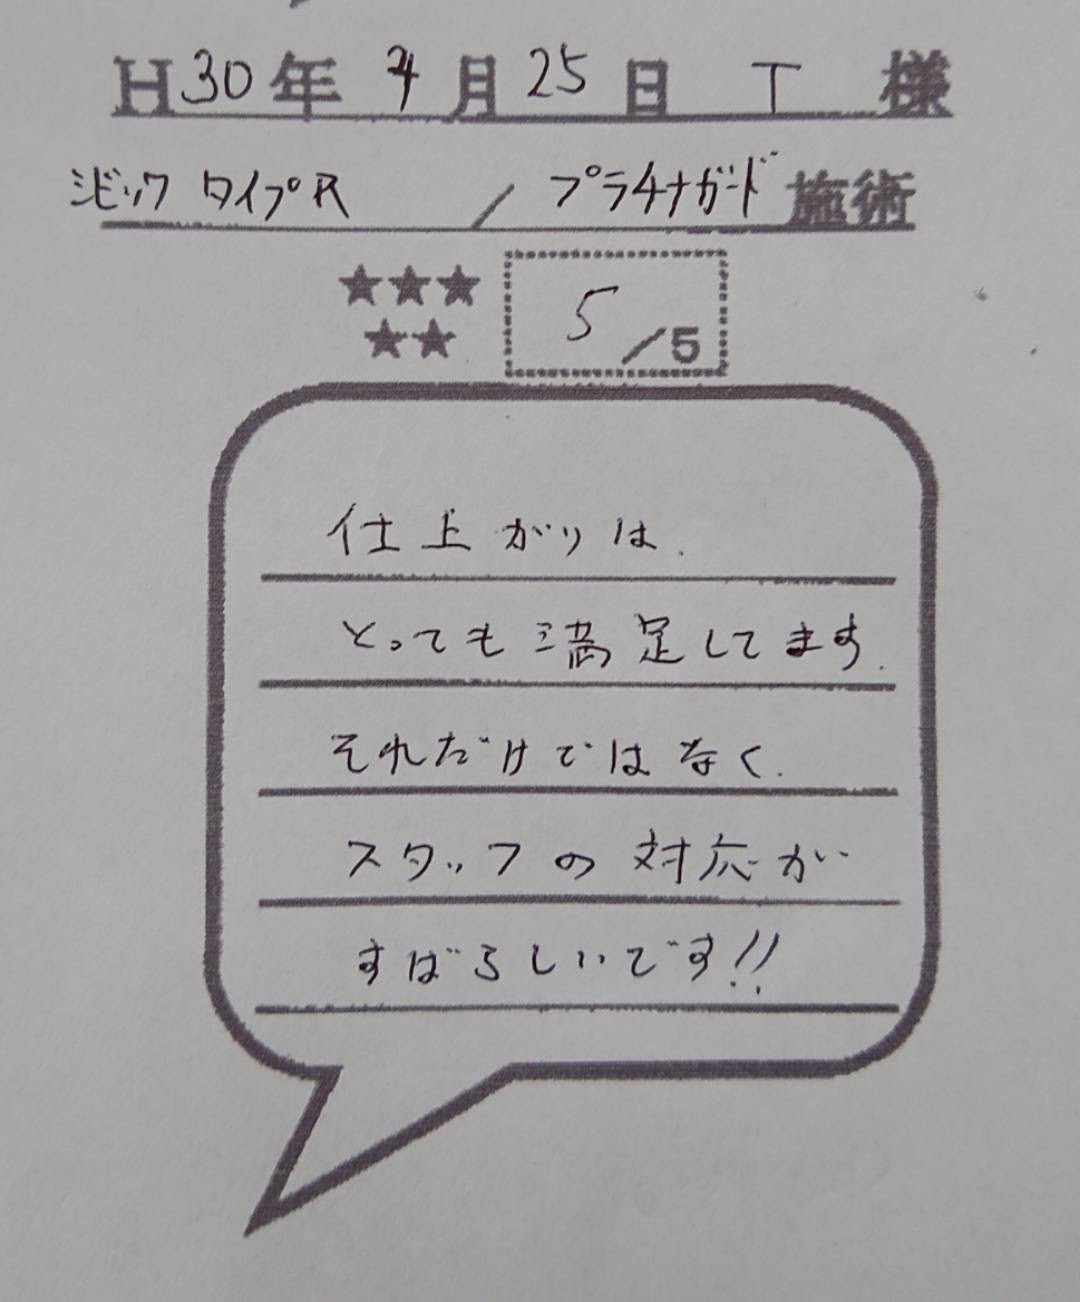 H30年 月25日 T 様
シビック タイプR / プラチナガード 施術
★★★
★★
5/5
仕上がりは、
とっても満足してます。
それだけではなく、
スタッフの対応が
すばらしいです!!